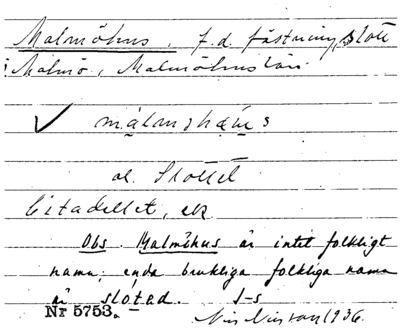 Malmöhus, f.d. fästning, slott
i Malmö, Malmöhus län.
✓ 
al. Slottet
Citadellet, ek
Obs. Malmöhus är intet folkligt
namn; enda brukliga folkliga namn
är slóted. I-s
Nr 5753. Nils Nilsson 1936.